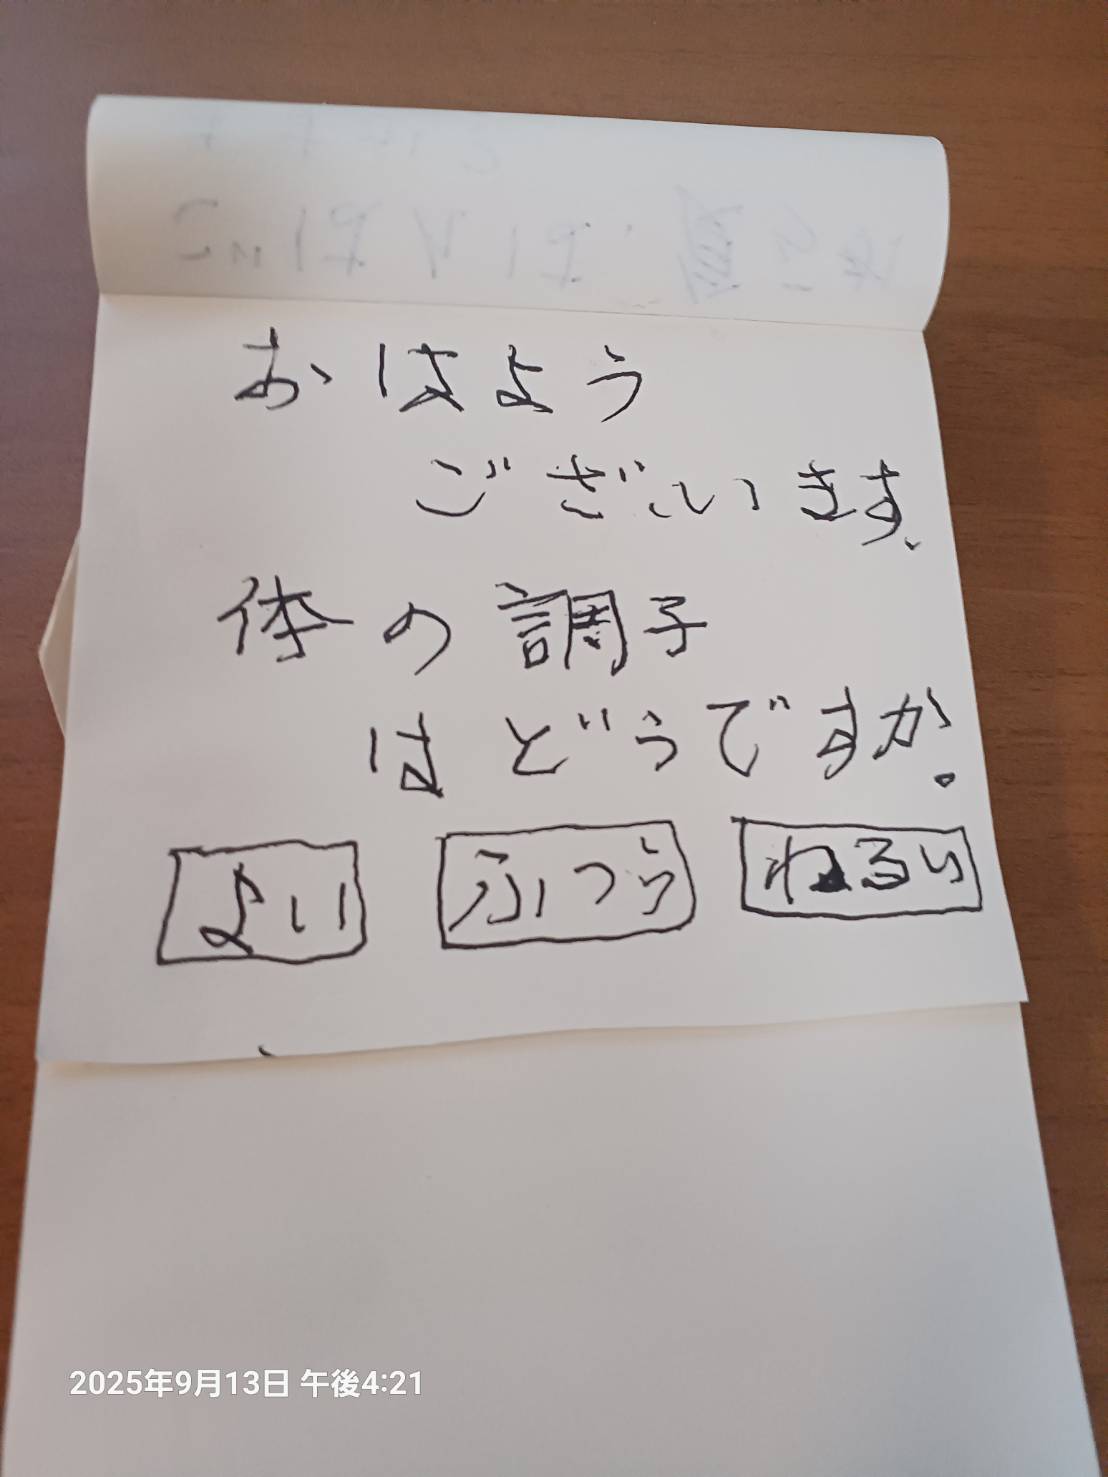 おはよう
ございます、
体の調子
はどうですか。
よい ふつう わるい
2025年9月13日 午後4:21